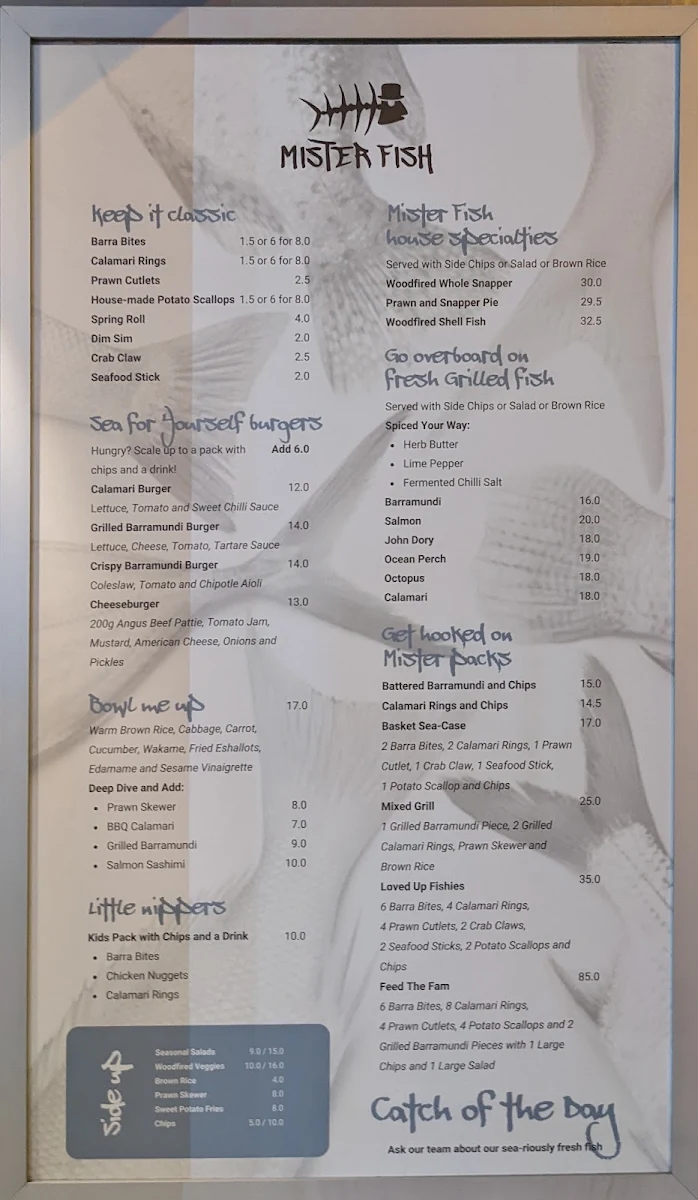 MISTER FISH
Keep it classic
Barra Bites 1.5 or 6 for 8.0
Calamari Rings 1.5 or 6 for 8.0
Prawn Cutlets 2.5
House-made Potato Scallops 1.5 or 6 for 8.0
Spring Roll 4.0
Dim Sim 2.0
Crab Claw 2.5
Seafood Stick 2.0
Sea for yourself burgers
Hungry? Scale up to a pack with Add 6.0
chips and a drink!
Calamari Burger 12.0
Lettuce, Tomato and Sweet Chilli Sauce
Grilled Barramundi Burger 14.0
Lettuce, Cheese, Tomato, Tartare Sauce
Crispy Barramundi Burger 14.0
Coleslaw, Tomato and Chipotle Aioli
Cheeseburger 13.0
200g Angus Beef Pattie, Tomato Jam,
Mustard, American Cheese, Onions and
Pickles
Bowl me up 17.0
Warm Brown Rice, Cabbage, Carrot,
Cucumber, Wakame, Fried Eshallots,
Edamame and Sesame Vinaigrette
Deep Dive and Add:
• Prawn Skewer 8.0
• BBQ Calamari 7.0
• Grilled Barramundi 9.0
• Salmon Sashimi 10.0
Little nippers
Kids Pack with Chips and a Drink 10.0
• Barra Bites
• Chicken Nuggets
• Calamari Rings
Side up
Seasonal Salads 9.0 / 15.0
Woodfired Veggies 10.0 / 16.0
Brown Rice 4.0
Prawn Skewer 8.0
Sweet Potato Fries 8.0
Chips 5.0 / 10.0
Mister Fish
house specialties
Served with Side Chips or Salad or Brown Rice
Woodfired Whole Snapper 30.0
Prawn and Snapper Pie 29.5
Woodfired Shell Fish 32.5
Go overboard on
fresh Grilled fish
Served with Side Chips or Salad or Brown Rice
Spiced Your Way:
• Herb Butter
• Lime Pepper
• Fermented Chilli Salt
Barramundi 16.0
Salmon 20.0
John Dory 18.0
Ocean Perch 19.0
Octopus 18.0
Calamari 18.0
Get hooked on
Mister packs
Battered Barramundi and Chips 15.0
Calamari Rings and Chips 14.5
Basket Sea-Case 17.0
2 Barra Bites, 2 Calamari Rings, 1 Prawn
Cutlet, 1 Crab Claw, 1 Seafood Stick,
1 Potato Scallop and Chips
Mixed Grill 25.0
1 Grilled Barramundi Piece, 2 Grilled
Calamari Rings, Prawn Skewer and
Brown Rice
Loved Up Fishies 35.0
6 Barra Bites, 4 Calamari Rings,
4 Prawn Cutlets, 2 Crab Claws,
2 Seafood Sticks, 2 Potato Scallops and
Chips
Feed The Fam 85.0
6 Barra Bites, 8 Calamari Rings,
4 Prawn Cutlets, 4 Potato Scallops and 2
Grilled Barramundi Pieces with 1 Large
Chips and 1 Large Salad
Catch of the Day
Ask our team about our sea-riously fresh fish